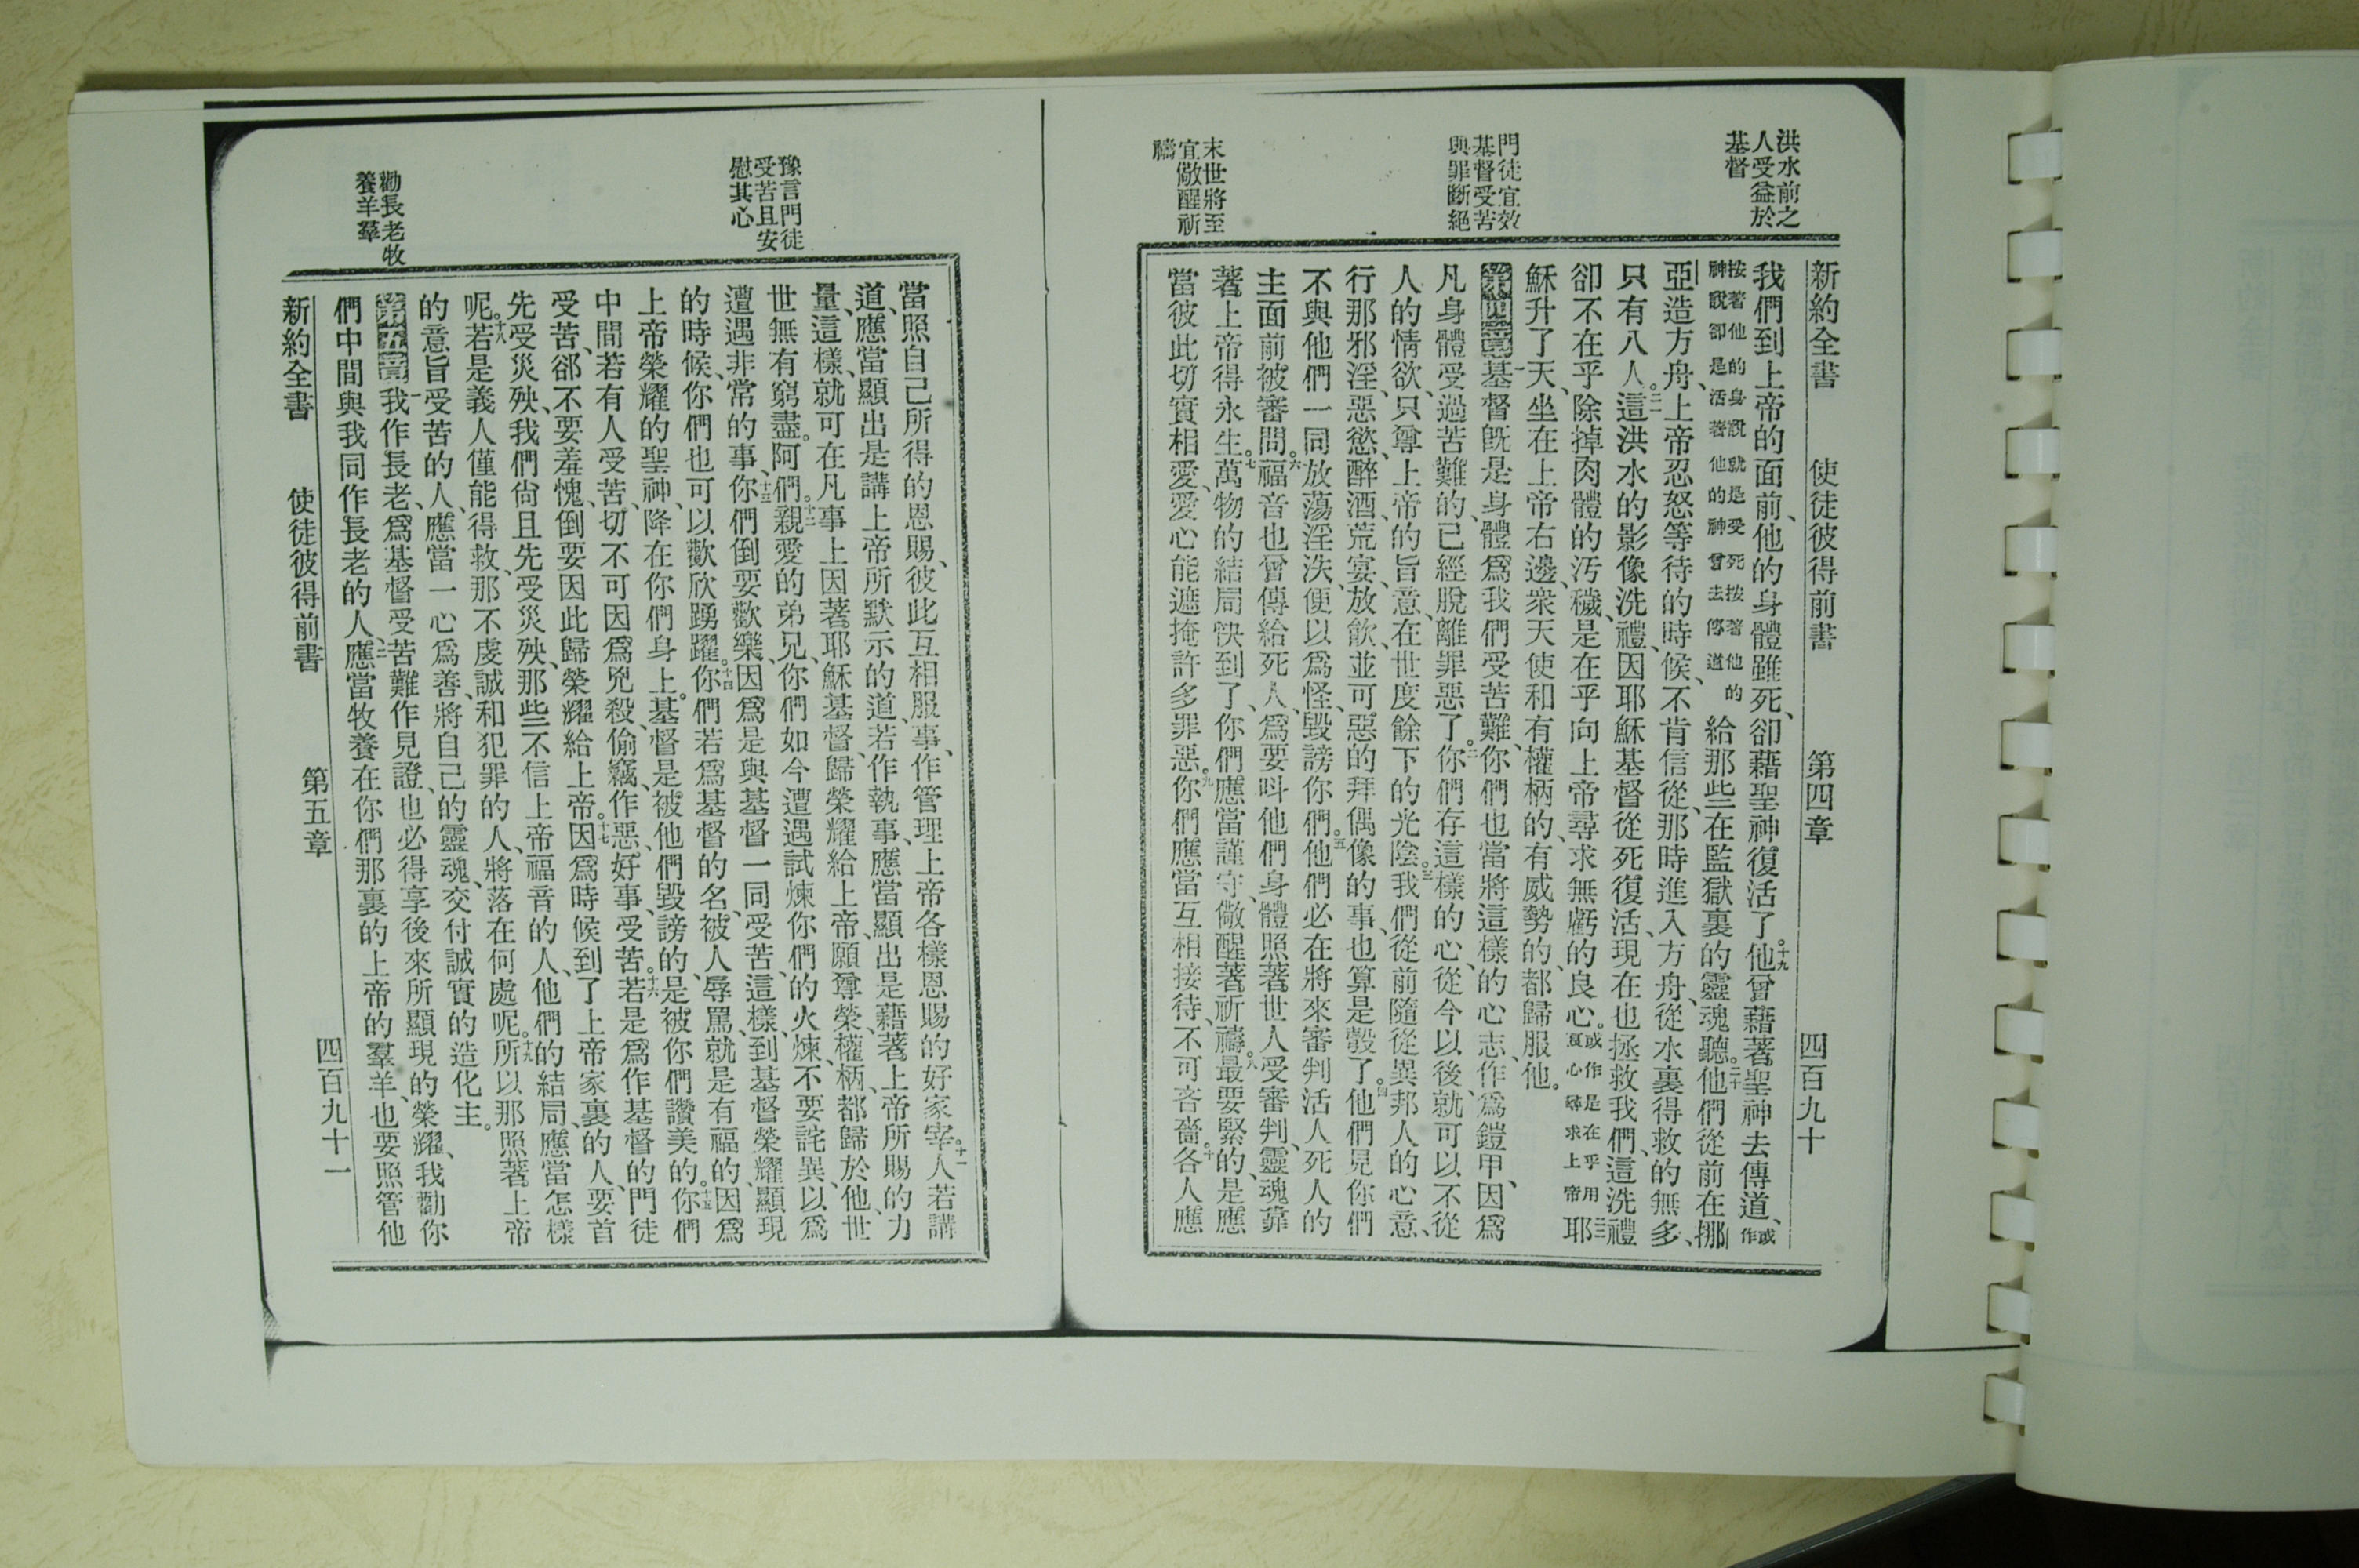 洪水前之
人受益於
基督
門徒宜效
基督受苦
與罪斷絕
末世將至
宜儆醒祈
禱
新約全書 使徒彼得前書 第四章 四百九十
我們到上帝的面前、他的身體雖死、卻藉聖神復活了。十九他曾藉著聖神去傳道、或作
按著他的身說就是受死按著他的神說卻是活著他的神曾去傳道 給那些在監獄裏的靈魂聽。二十他們從前在挪
亞造方舟、上帝忍怒等待的時候、不肯信從、那時進入方舟、從水裏得救的無多、
只有八人。二一這洪水的影像洗禮、因耶穌基督從死復活、現在也拯救我們、這洗禮
卻不在乎除掉肉體的污穢、是在乎向上帝尋求無虧的良心。或作是在乎用良心尋求上帝 二二耶
穌升了天、坐在上帝右邊、衆天使和有權柄的、有威勢的、都歸服他。
第四章 一基督旣是身體爲我們受苦難、你們也當將這樣的心志、作爲鎧甲、因爲
凡身體受過苦難的、已經脫離罪惡了。二你們存這樣的心、從今以後、就可以不從
人的情欲、只尊上帝的旨意、在世度餘下的光陰。三我們從前隨從異邦人的心意、
行那邪淫、惡慾、醉酒、荒宴、放飮、並可惡的拜偶像的事、也算是彀了。四他們見你們
不與他們一同放蕩淫泆、便以爲怪、毀謗你們。五他們必在將來審判活人死人的
主面前被審問。六福音也曾傳給死人、爲要呌他們身體照著世人受審判、靈魂靠
著上帝得永生。七萬物的結局快到了、你們應當謹守、儆醒著祈禱。八最要緊的、是應
當彼此切實相愛、愛心能遮掩許多罪惡。九你們應當互相接待、不可吝嗇。十各人應
豫言門徒
受苦且安
慰其心
勸長老牧
養羊羣
當照自己所得的恩賜、彼此互相服事、作管理上帝各樣恩賜的好家宰。十一人若講
道、應當顯出是講上帝所默示的道、若作執事、應當顯出是藉著上帝所賜的力
量、這樣、就可在凡事上因著耶穌基督、歸榮耀給上帝、願尊榮、權柄、都歸於他、世
世無有窮盡。阿們。十二親愛的弟兄、你們如今遭遇試煉你們的火煉、不要詫異、以爲
遭遇非常的事、十三你們倒要歡樂、因爲是與基督一同受苦、這樣、到基督榮耀顯現
的時候、你們也可以歡欣踴躍。十四你們若爲基督的名、被人辱罵、就是有福的、因爲
上帝榮耀的聖神、降在你們身上。基督是被他們毀謗的、是被你們讚美的。十五你們
中間若有人受苦、切不可因爲兇殺、偷竊、作惡、好事、受苦。十六若是爲作基督的門徒
受苦、卻不要羞愧、倒要因此歸榮耀給上帝。十七因爲時候到了、上帝家裏的人、要首
先受災殃、我們尙且先受災殃、那些不信上帝福音的人、他們的結局、應當怎樣
呢。十八若是義人僅能得救、那不虔誠和犯罪的人、將落在何處呢。十九所以那照著上帝
的意旨受苦的人、應當一心爲善、將自己的靈魂、交付誠實的造化主。
第五章 一我作長老、爲基督受苦難作見證、也必得享後來所顯現的榮耀、我勸你
們中間與我同作長老的人、二應當牧養在你們那裏的上帝的羣羊、也要照管他
新約全書 使徒彼得前書 第五章 四百九十一